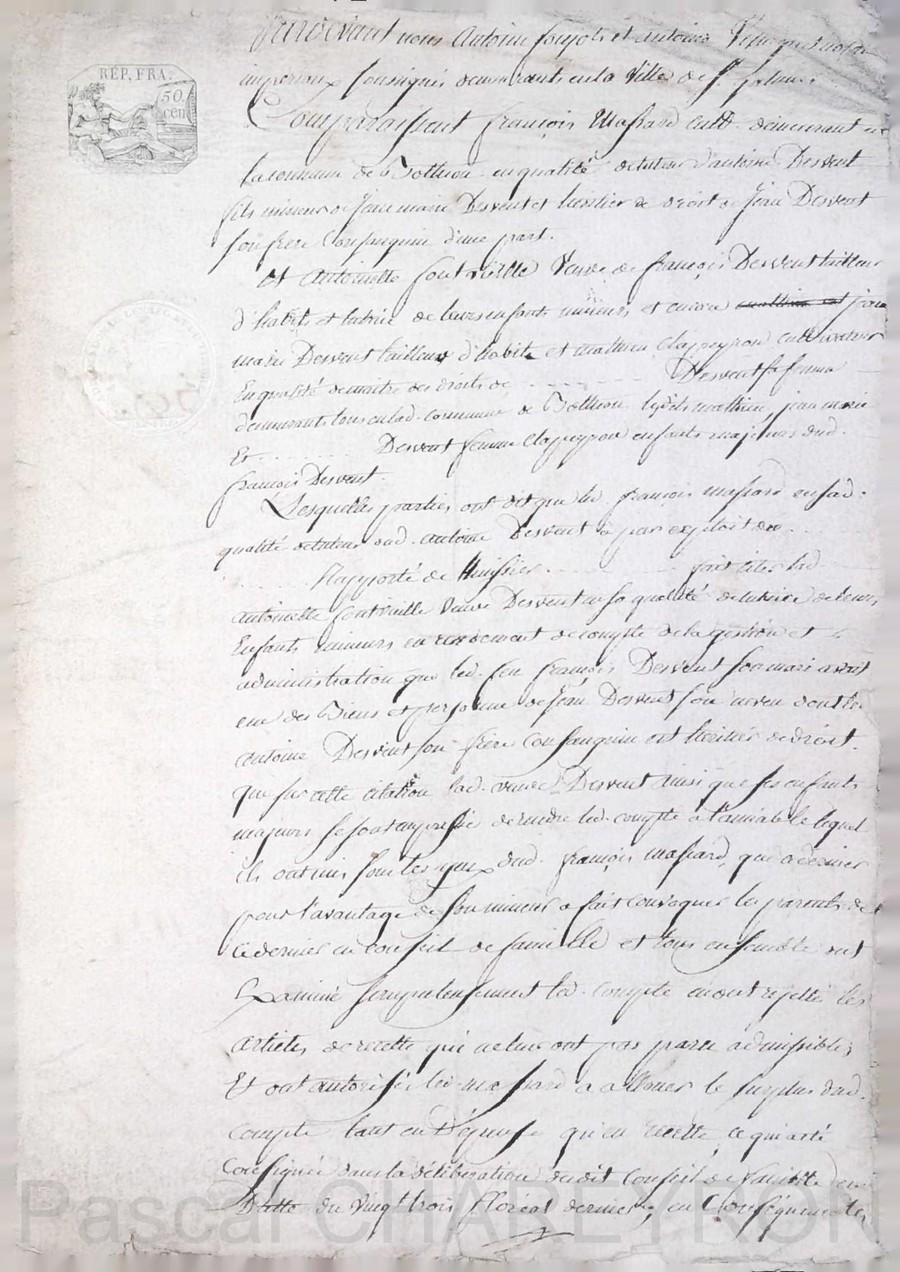 REP. FRA.
50. cen
Pardevant nous Antoine et Antoine
imperiaux soussignés demeurants en la Ville de St. galmier
Comparaissent françois Massard cult. demeurant en
la commune de Bothéon en qualité de tuteur d'antoine Desvent
fils mineur de Jean marie Desvent et héritier de droit de Jean Desvent
son frère Consanguin d'une part.
Et Antoinette Veuve de françois Desvent tailleur
d'habits et tutrice de leurs enfants mineurs et encore jean
marie Desvent tailleur d'habits et mathieu Clapeyron cultivateur
En qualité de maitre des droits de Desvent sa femme
demeurants tous en lad. commune de Bothéon lesds. mathieu, jean marie
Et Desvent femme Clapeyron enfants majeurs dud.
françois Desvent.
Lesquelles parties ont dit que led. françois massard en sad.
qualité de tuteur dud. antoine Desvent a par exploit du
Rapporté de huissier fait citer lad.
antoinette Veuve Desvent en sa qualité de tutrice de leurs
Enfants mineurs en rendement de compte de la gestion et
administration que led. feu françois Desvent son mari avoit
eue des Biens et personne de Jean Desvent son neveu dont led.
antoine Desvent son frère consanguin est héritier de droit.
que sur cette citation lad. veuve Desvent ainsi que ses enfants
majeurs se sont empressés de rendre led. compte à l'amiable lequel
ils ont mis sous les yeux dud. françois massard, que ce dernier
pour l'avantage de son mineur a fait convoquer les parents de
ce dernier en conseil de famille et tous ensemble ont
Examiné scrupuleusement led. compte en ont rejetté les
articles de recette qui ne leur ont pas paru admissibles
Et ont autorisé led. massard a allouer le surplus dud.
compte tant en Dépense qu'en recette, ce qui a été
Consignée dans la délibération dudit Conseil de famille en
Datte du Vingt trois floréal dernier, en Conséquence
Pascal CHARLEYRON